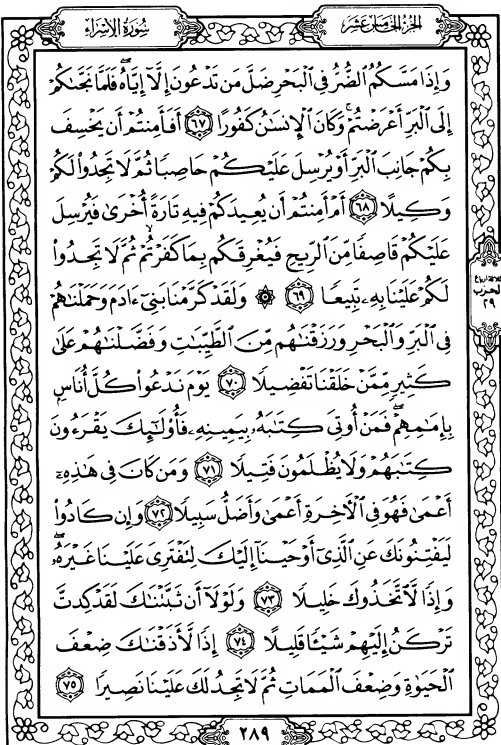 سُورَةُ الإِسْرَاءِ
الجُزْءُ الخَامِسُ عَشَرَ
وَإِذَا مَسَّكُمُ ٱلضُّرُّ فِى ٱلْبَحْرِ ضَلَّ مَن تَدْعُونَ إِلَّآ إِيَّاهُ ۖ فَلَمَّا نَجَّىٰكُمْ
إِلَى ٱلْبَرِّ أَعْرَضْتُمْ ۚ وَكَانَ ٱلْإِنسَٰنُ كَفُورًا ٦٧ أَفَأَمِنتُمْ أَن يَخْسِفَ
بِكُمْ جَانِبَ ٱلْبَرِّ أَوْ يُرْسِلَ عَلَيْكُمْ حَاصِبًا ثُمَّ لَا تَجِدُوا۟ لَكُمْ
وَكِيلًا ٦٨ أَمْ أَمِنتُمْ أَن يُعِيدَكُمْ فِيهِ تَارَةً أُخْرَىٰ فَيُرْسِلَ
عَلَيْكُمْ قَاصِفًا مِّنَ ٱلرِّيحِ فَيُغْرِقَكُم بِمَا كَفَرْتُمْ ۙ ثُمَّ لَا تَجِدُوا۟
لَكُمْ عَلَيْنَا بِهِۦ تَبِيعًا ٦٩ ۞ وَلَقَدْ كَرَّمْنَا بَنِىٓ ءَادَمَ وَحَمَلْنَٰهُمْ
فِى ٱلْبَرِّ وَٱلْبَحْرِ وَرَزَقْنَٰهُم مِّنَ ٱلطَّيِّبَٰتِ وَفَضَّلْنَٰهُمْ عَلَىٰ
كَثِيرٍ مِّمَّنْ خَلَقْنَا تَفْضِيلًا ٧٠ يَوْمَ نَدْعُوا۟ كُلَّ أُنَاسٍۭ
بِإِمَٰمِهِمْ ۖ فَمَنْ أُوتِىَ كِتَٰبَهُۥ بِيَمِينِهِۦ فَأُو۟لَٰٓئِكَ يَقْرَءُونَ
كِتَٰبَهُمْ وَلَا يُظْلَمُونَ فَتِيلًا ٧١ وَمَن كَانَ فِى هَٰذِهِۦٓ
أَعْمَىٰ فَهُوَ فِى ٱلْءَاخِرَةِ أَعْمَىٰ وَأَضَلُّ سَبِيلًا ٧٢ وَإِن كَادُوا۟
لَيَفْتِنُونَكَ عَنِ ٱلَّذِىٓ أَوْحَيْنَآ إِلَيْكَ لِتَفْتَرِىَ عَلَيْنَا غَيْرَهُۥ ۖ
وَإِذًا لَّٱتَّخَذُوكَ خَلِيلًا ٧٣ وَلَوْلَآ أَن ثَبَّتْنَٰكَ لَقَدْ كِدتَّ
تَرْكَنُ إِلَيْهِمْ شَيْـًٔا قَلِيلًا ٧٤ إِذًا لَّأَذَقْنَٰكَ ضِعْفَ
ٱلْحَيَوٰةِ وَضِعْفَ ٱلْمَمَاتِ ثُمَّ لَا تَجِدُ لَكَ عَلَيْنَا نَصِيرًا ٧٥
الحزب
٢٩
٢٨٩